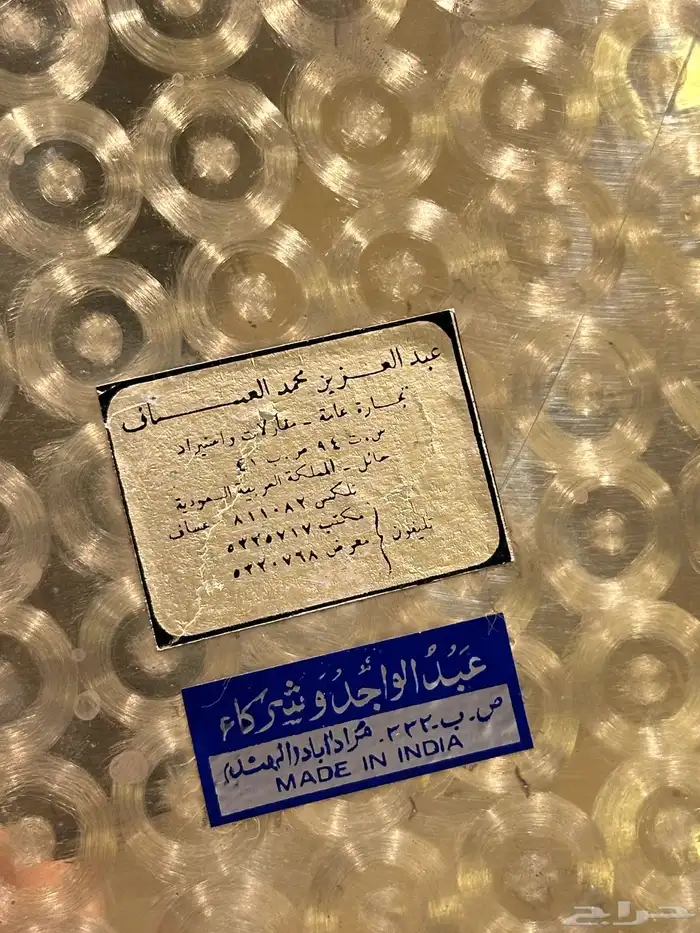 عبد العزيز محمد العساف
تجارة عامة - مقاولات واستيراد
س.ت ٩٤ ص.ب ٤١
حائل - المملكة العربية السعودية
تلكس ٨١١٠٨٢ عساف
تليفون مكتب ٥٣٢٥٧١٧
معرض ٥٣٢٠٧٦٨
عَبْدُ الواجِدُ وَشِركاء
ص.ب. ٣٣٢. مُرادآباد (الهند)
MADE IN INDIA
حراج